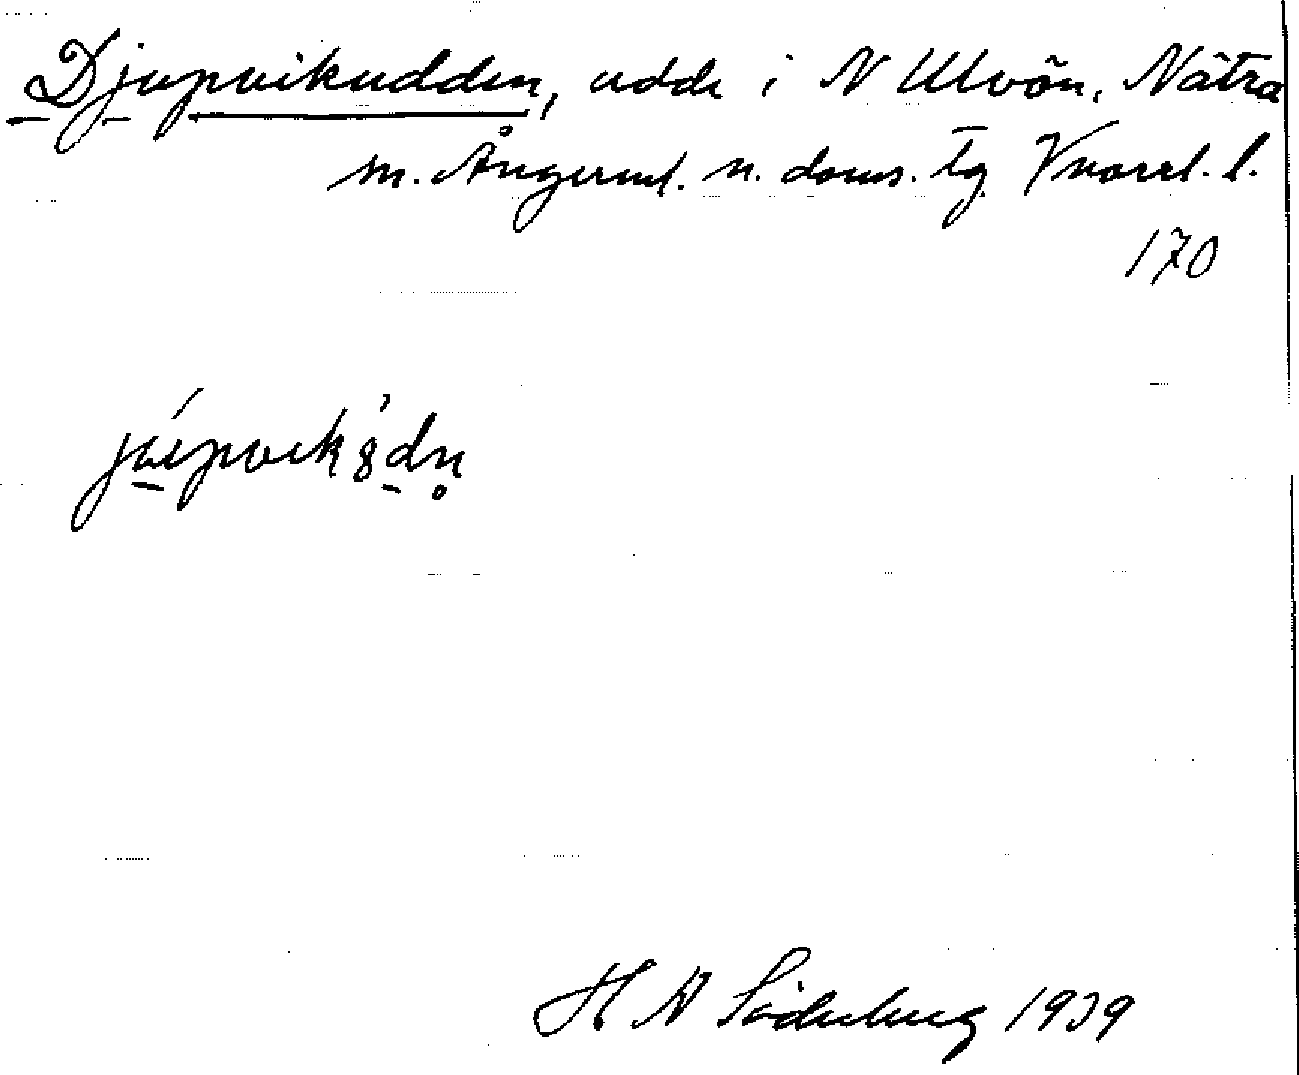 Djupvikudden, udde i N Ulvön, Nätra
m. Ångerml. n. doms. tg Vnorrl. l.
170
H N Söderberg 1939